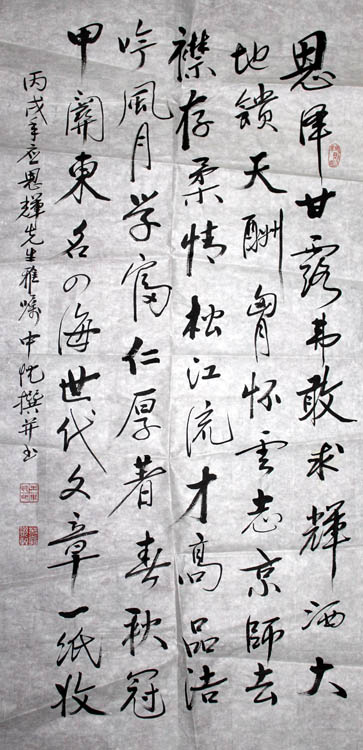 恩泽甘露弗敢求輝洒大
地馈天酬胸怀雲志京師去
襟存柔情松江流才高品洁
吟風月学富仁厚著春秋冠
甲關東名四海世代文章一紙收
丙戌年应恩輝先生雅嘱 中 撰并书